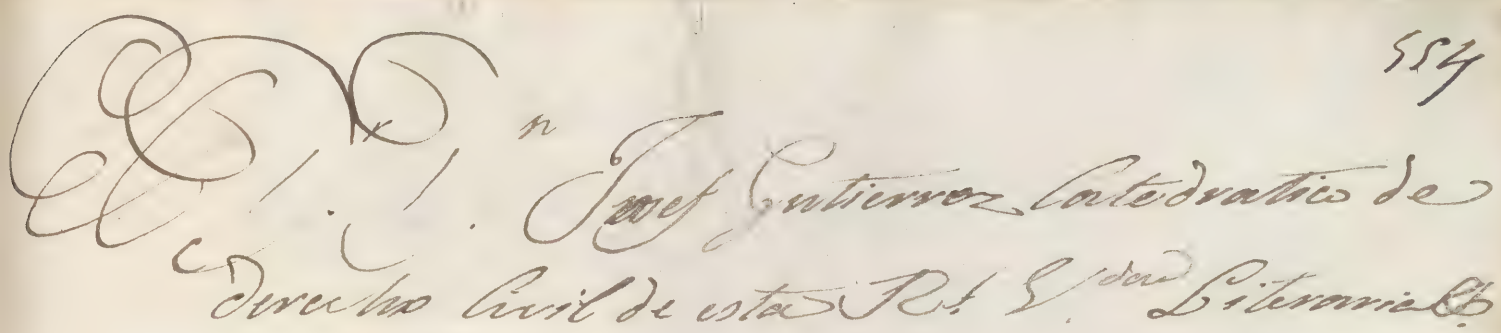 554
D.n Josef Gutierrez Catedratico de
derecho Civil de esta R.l V.dad Literaria